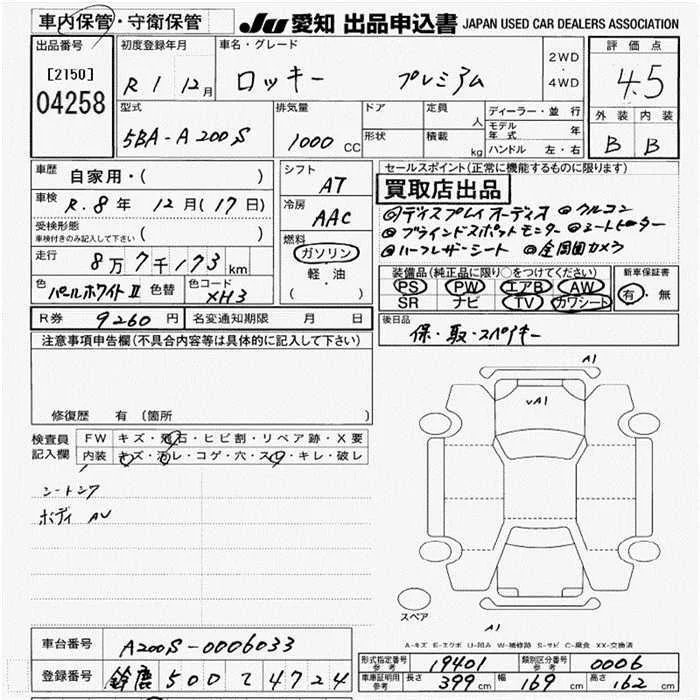 車内保管・守衛保管 JU 愛知 出品申込書 JAPAN USED CAR DEALERS ASSOCIATION
出品番号 [2150] 04258
初度登録年月 R1 12月
車名・グレード ロッキー プレミアム
2WD・4WD
評価点 4.5
外装 内装
B B
型式 5BA-A200S
排気量 1000 CC
ドア 定員 人
形状 積載 kg
ディーラー・並行
モデル年式 年
ハンドル 左・右
車歴 自家用・( )
車検 R.8年 12月(17日)
受検形態
車検付きのみ記入して下さい ( )
走行 8万7千173km
色 パールホワイトⅡ 色替 色コード XH3
シフト AT
冷房 AAC
燃料 ガソリン
軽・油
( )
セールスポイント(正常に機能するものに限ります)
買取店出品
◎ディスプレイオーディオ ◎クルコン
◎ブラインドスポットモニター ◎シートヒーター
◎ハーフレザーシート ◎全周囲カメラ
装備品(純正品に限り○をつけてください)
PS PW エアB AW
SR ナビ TV カワシート
新車保証書 有・無
R券 9260円 名変通知期限 月 日
後日品 保・取・スペアキー
注意事項申告欄(不具合内容等は具体的に記入して下さい)
修復歴 有 (箇所 )
検査員記入欄
FW キズ・飛石・ヒビ割・リペア跡・X要
内装 キズ・汚レ・コゲ・穴・スレ・キレ・破レ
シートシワ
ボディ AU
A1
vA1
スペア
A1
A-キズ E-エクボ U-凹み W-補修跡 S-サビ C-腐食 XX-交換済
車台番号 A200S-0006033
登録番号 鈴鹿 500 て 4724
形式指定番号 参考 19401 類別区分番号 参考 0006
車庫証明用 参考 長さ 399cm 幅 169cm 高さ 162cm